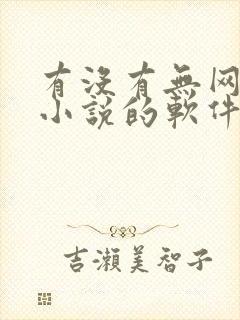 有没有無网
小説的軟件
吉瀬美智子